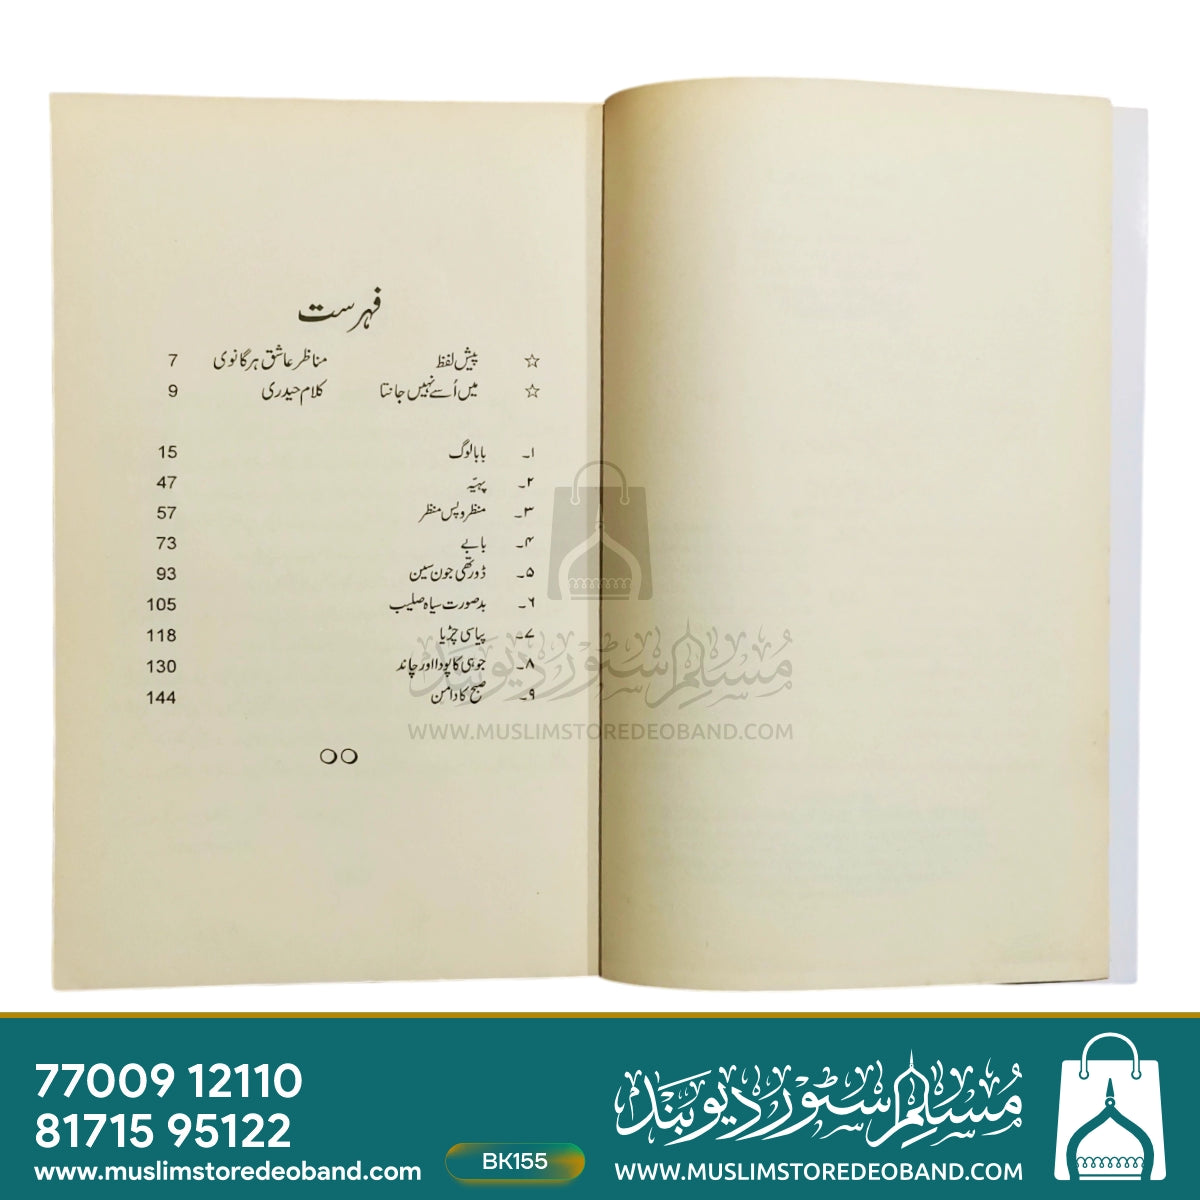 فہرست
☆ پیش لفظ مناظر عاشق ہرگانوی 7
☆ میں اُسے نہیں جانتا کلام حیدری 9
۱۔ بابا لوگ 15
۲۔ پہیّہ 47
۳۔ منظر و پس منظر 57
۴۔ بابے 73
۵۔ ڈورتھی جون سین 93
۶۔ بدصورت سیاہ صلیب 105
۷۔ پیاسی چڑیا 118
۸۔ جوہی کا پودا اور چاند 130
۹۔ صبح کا دامن 144
مُسلم سٹور دیوبند
WWW.MUSLIMSTOREDEOBAND.COM
77009 12110
81715 95122
www.muslimstoredeoband.com
BK155
مُسلم سٹور دیوبند
WWW.MUSLIMSTOREDEOBAND.COM